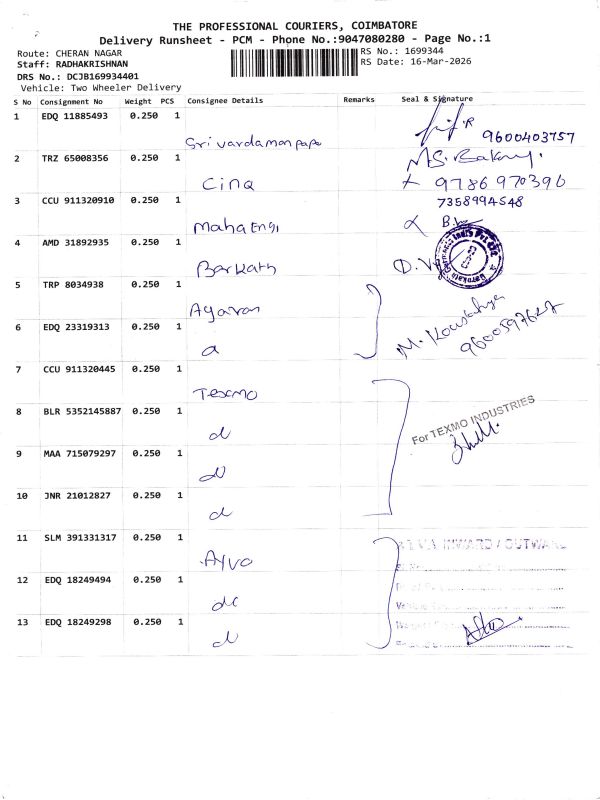 THE PROFESSIONAL COURIERS, COIMBATORE
Delivery Runsheet - PCM - Phone No.:9047080280 - Page No.:1
Route: CHERAN NAGAR
RS No.: 1699344
Staff: RADHAKRISHNAN
RS Date: 16-Mar-2026
DRS No.: DCJB169934401
Vehicle: Two Wheeler Delivery
S No Consignment No Weight PCS Consignee Details Remarks Seal & Signature
1 EDQ 11885493 0.250 1
Sri vardaman pape 9600403757
2 TRZ 65008356 0.250 1
Cina 9786970396
3 CCU 911320910 0.250 1 7358994548
Maha Engi
4 AMD 31892935 0.250 1
Barkath
5 TRP 8034938 0.250 1
6 EDQ 23319313 0.250 1
M. 
7 CCU 911320445 0.250 1
Texmo
8 BLR 5352145887 0.250 1
For TEXMO INDUSTRIES
9 MAA 715079297 0.250 1
10 JNR 21012827 0.250 1
11 SLM 391331317 0.250 1
INWARD / OUTWARD
12 EDQ 18249494 0.250 1
13 EDQ 18249298 0.250 1